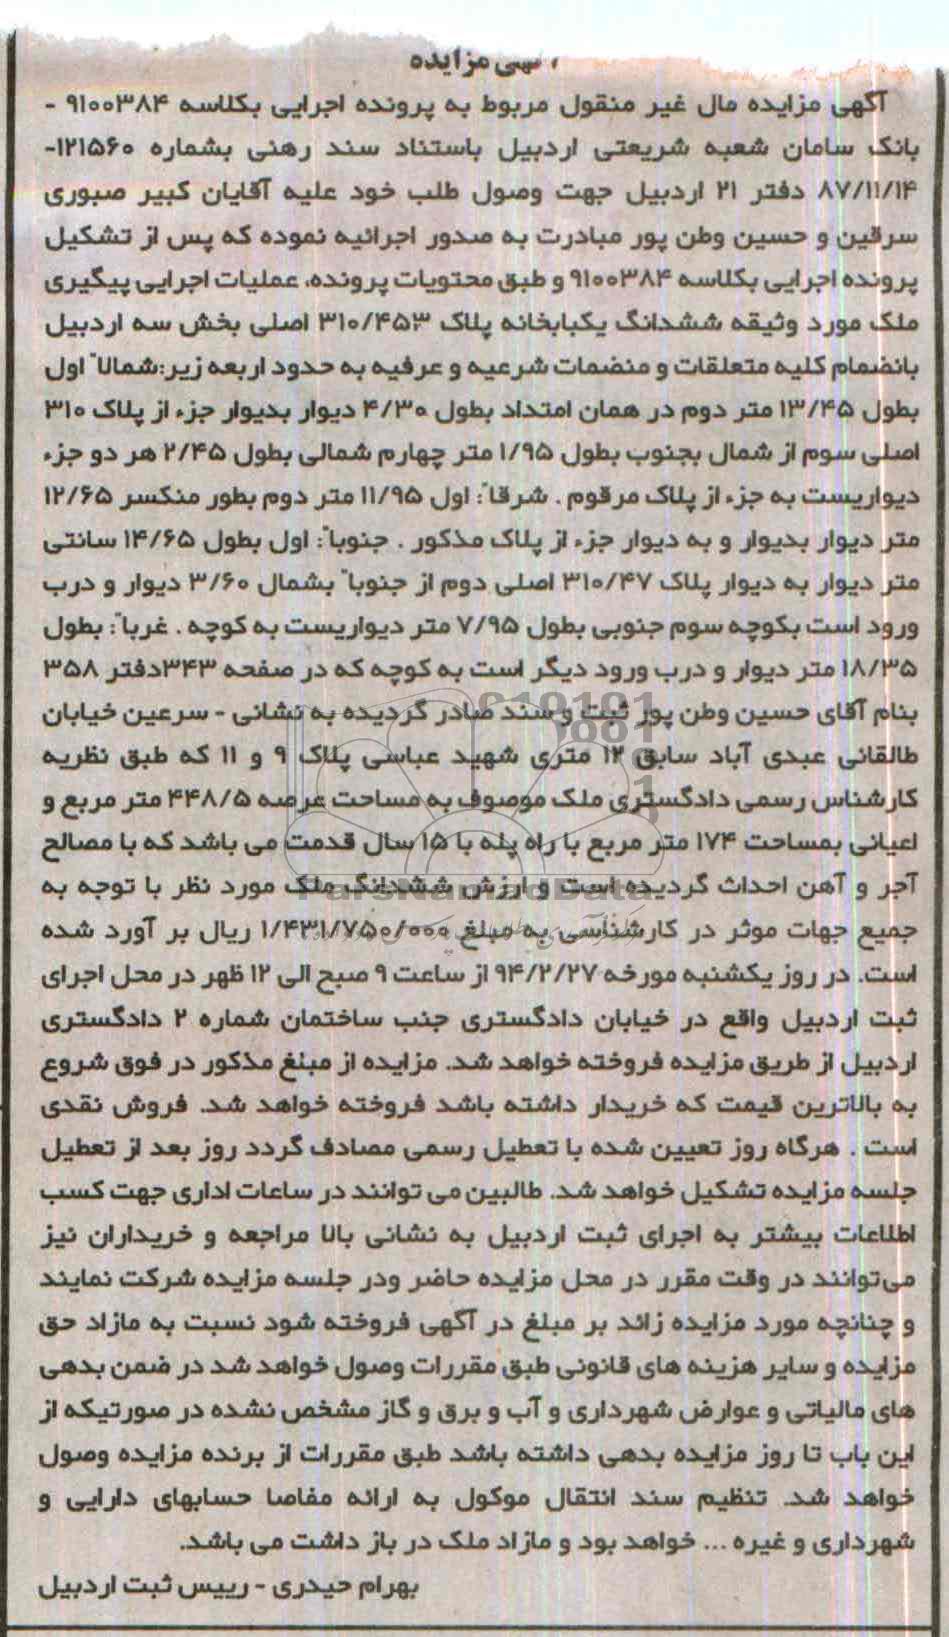 آگهی مزایده
آگهی مزایده مال غیر منقول مربوط به پرونده اجرایی بکلاسه ۹۱۰۰۳۸۴ -
بانک سامان شعبه شریعتی اردبیل باستناد سند رهنی بشماره ۱۲۱۵۶۰-
۸۷/۱۱/۱۴ دفتر ۲۱ اردبیل جهت وصول طلب خود علیه آقایان کبیر صبوری
سرقین و حسین وطن پور مبادرت به صدور اجرائیه نموده که پس از تشکیل
پرونده اجرایی بکلاسه ۹۱۰۰۳۸۴ و طبق محتویات پرونده، عملیات اجرایی پیگیری
ملک مورد وثیقه ششدانگ یکبابخانه پلاک ۳۱۰/۴۵۳ اصلی بخش سه اردبیل
بانضمام کلیه متعلقات و منضمات شرعیه و عرفیه به حدود اربعه زیر:شمالاً اول
بطول ۱۳/۴۵ متر دوم در همان امتداد بطول ۴/۳۰ دیوار بدیوار جزء از پلاک ۳۱۰
اصلی سوم از شمال بجنوب بطول ۱/۹۵ متر چهارم شمالی بطول ۲/۴۵ هر دو جزء
دیواریست به جزء از پلاک مرقوم . شرقاً: اول ۱۱/۹۵ متر دوم بطور منکسر ۱۲/۶۵
متر دیوار بدیوار و به دیوار جزء از پلاک مذکور . جنوباً: اول بطول ۱۴/۶۵ سانتی
متر دیوار به دیوار پلاک ۳۱۰/۴۷ اصلی دوم از جنوباً بشمال ۳/۶۰ دیوار و درب
ورود است بکوچه سوم جنوبی بطول ۷/۹۵ متر دیواریست به کوچه . غرباً: بطول
۱۸/۳۵ متر دیوار و درب ورود دیگر است به کوچه که در صفحه ۳۴۳دفتر ۳۵۸
بنام آقای حسین وطن پور ثبت و سند صادر گردیده به نشانی - سرعین خیابان
طالقانی عبدی آباد سابق ۱۲ متری شهید عباسی پلاک ۹ و ۱۱ که طبق نظریه
کارشناس رسمی دادگستری ملک موصوف به مساحت عرصه ۴۴۸/۵ متر مربع و
اعیانی بمساحت ۱۷۴ متر مربع با راه پله با ۱۵ سال قدمت می باشد که با مصالح
آجر و آهن احداث گردیده است و ارزش ششدانگ ملک مورد نظر با توجه به
ParsNamadData
جمیع جهات موثر در کارشناسی به مبلغ ۱/۴۳۱/۷۵۰/۰۰۰ ریال بر آورد شده
است. در روز یکشنبه مورخه ۹۴/۲/۲۷ از ساعت ۹ صبح الی ۱۲ ظهر در محل اجرای
ثبت اردبیل واقع در خیابان دادگستری جنب ساختمان شماره ۲ دادگستری
اردبیل از طریق مزایده فروخته خواهد شد. مزایده از مبلغ مذکور در فوق شروع
به بالاترین قیمت که خریدار داشته باشد فروخته خواهد شد. فروش نقدی
است . هرگاه روز تعیین شده با تعطیل رسمی مصادف گردد روز بعد از تعطیل
جلسه مزایده تشکیل خواهد شد. طالبین می توانند در ساعات اداری جهت کسب
اطلاعات بیشتر به اجرای ثبت اردبیل به نشانی بالا مراجعه و خریداران نیز
می‌توانند در وقت مقرر در محل مزایده حاضر ودر جلسه مزایده شرکت نمایند
و چنانچه مورد مزایده زائد بر مبلغ در آگهی فروخته شود نسبت به مازاد حق
مزایده و سایر هزینه های قانونی طبق مقررات وصول خواهد شد در ضمن بدهی
های مالیاتی و عوارض شهرداری و آب و برق و گاز مشخص نشده در صورتیکه از
این باب تا روز مزایده بدهی داشته باشد طبق مقررات از برنده مزایده وصول
خواهد شد. تنظیم سند انتقال موکول به ارائه مفاصا حسابهای دارایی و
شهرداری و غیره ... خواهد بود و مازاد ملک در باز داشت می باشد.
بهرام حیدری - رییس ثبت اردبیل